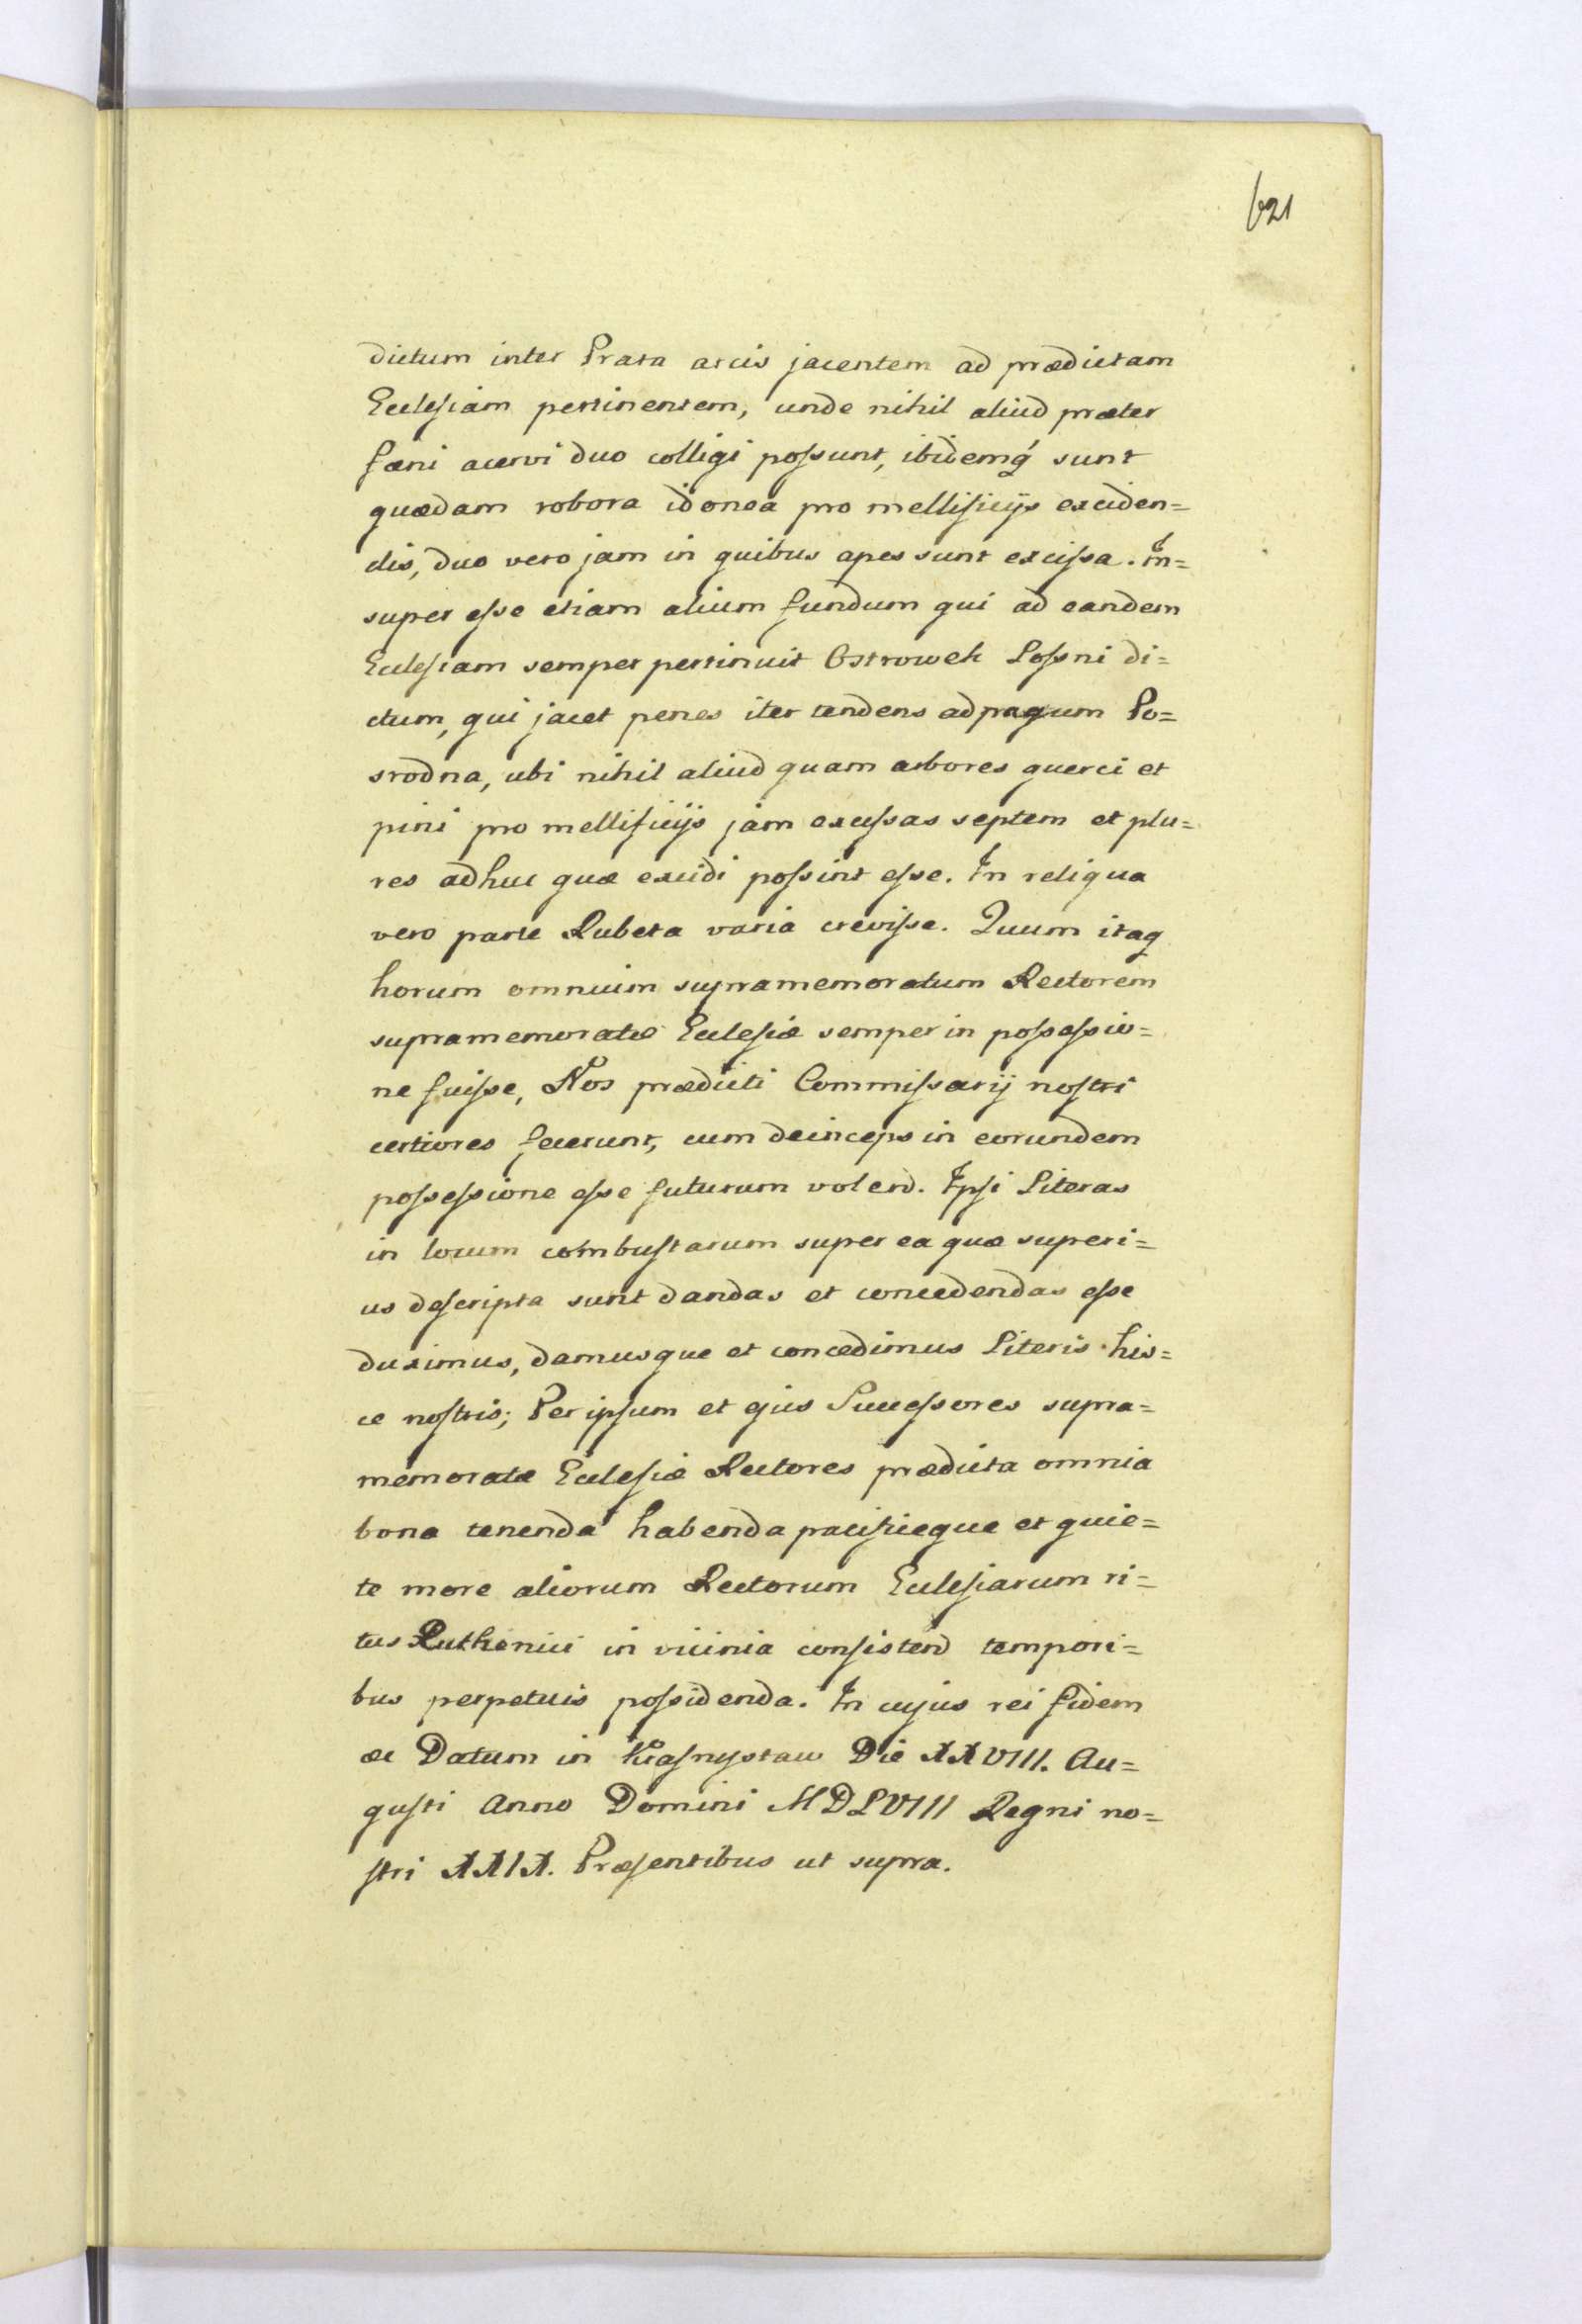 621
dictum inter Prata arcis jacentem ad prædictam
Ecclesiam pertinentem, unde nihil aliud præter
fæni acervi duo colligi possunt, ibidemq́ sunt
quædam robora idonea pro mellificijs exciden=
dis, duo vero jam in quibus apes sunt excissa. In=
super esse etiam alium fundum qui ad eandem
Ecclesiam semper pertinuit Ostroweh Lossni di=
ctum, qui jacet penes iter tendens ad pagum Po=
srodna, ubi nihil aliud quam arbores querci et
pini pro mellificijs jam excissas septem et plu=
res adhuc quæ excidi possint esse. In reliqua
vero parte Rubeta varia crevisse. Quum itaq
horum omnium supramemoratum Rectorem
supramemoratæ Ecclesiæ semper in possessio=
ne fuisse, Nos prædicti Commissarij nostri
certiores fecerunt, cum deinceps in eorundem
possessione esse futurum volend. Ipsi Literas
in locum combustarum super ea quæ superi=
us descripta sunt dandas et concedendas esse
duximus, damusque et concedimus Literis his=
ce nostris; Per ipsum et ejus Successores supra=
memoratæ Ecclesiæ Rectores prædicta omnia
bona tenenda habenda pacificeque et quie=
te more aliorum Rectorum Ecclesiarum ri=
tus Ruthenici in vicinia consistend tempori=
bus perpetuis possidenda. In cujus rei fidem
æc Datum in Krasnystaw Die XXVIII. Au=
gusti Anno Domini MDLVIII Regni no=
stri XXIX. Præsentibus ut supra.